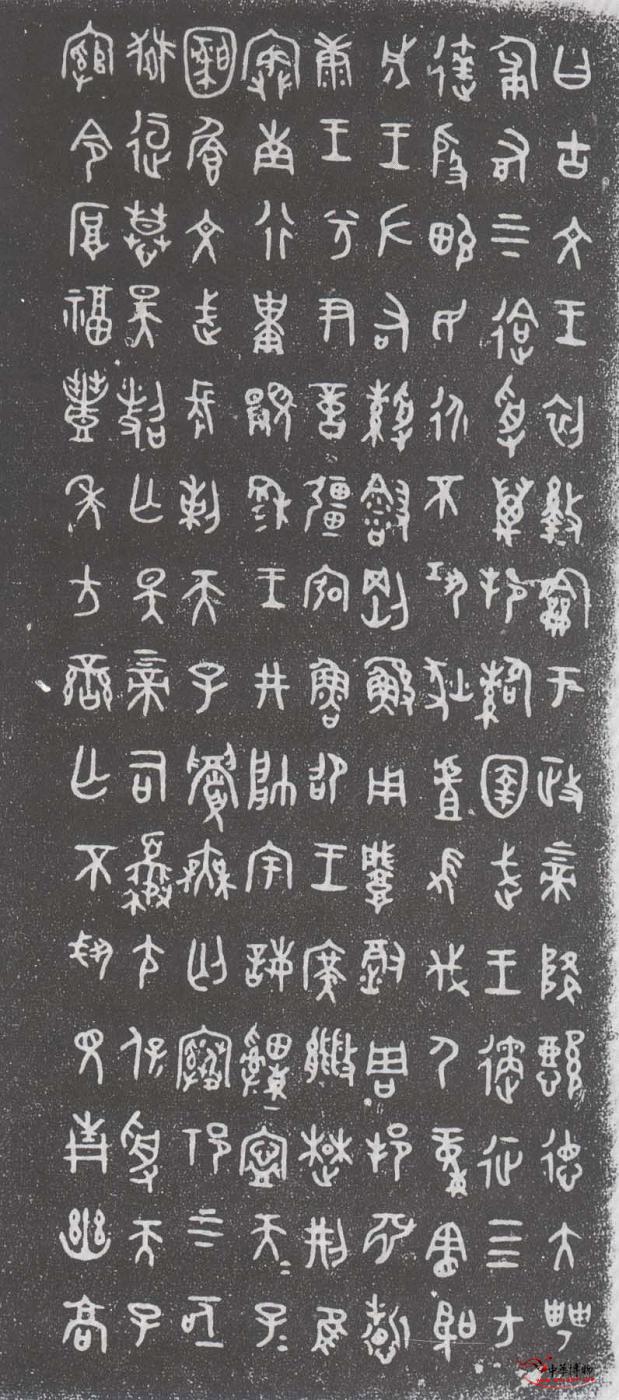 曰古文王初盭龢于政上帝降懿德大甹
匍有上下迨受萬邦䚄圉武王遹征四方
達殷畯民永不巩狄虘𢼸伐尸童憲聖
成王左右綬䋣剛鯀用肇徹周邦淵哲
康王兮尹𠶷疆宖魯卲王廣能楚荊隹
寏南行祗顯穆王井帥宇誨䌛寧天子天子
文武長剌天子無匄祁上下亟
桓慕昊亡斁上帝司夏尤保受天子
綰令厚福豐年方蠻亡不𢦚見青幽高